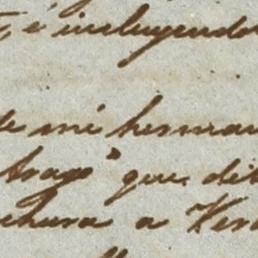 é incluyendo
de mi herman
trajo" que di
chura a Ver